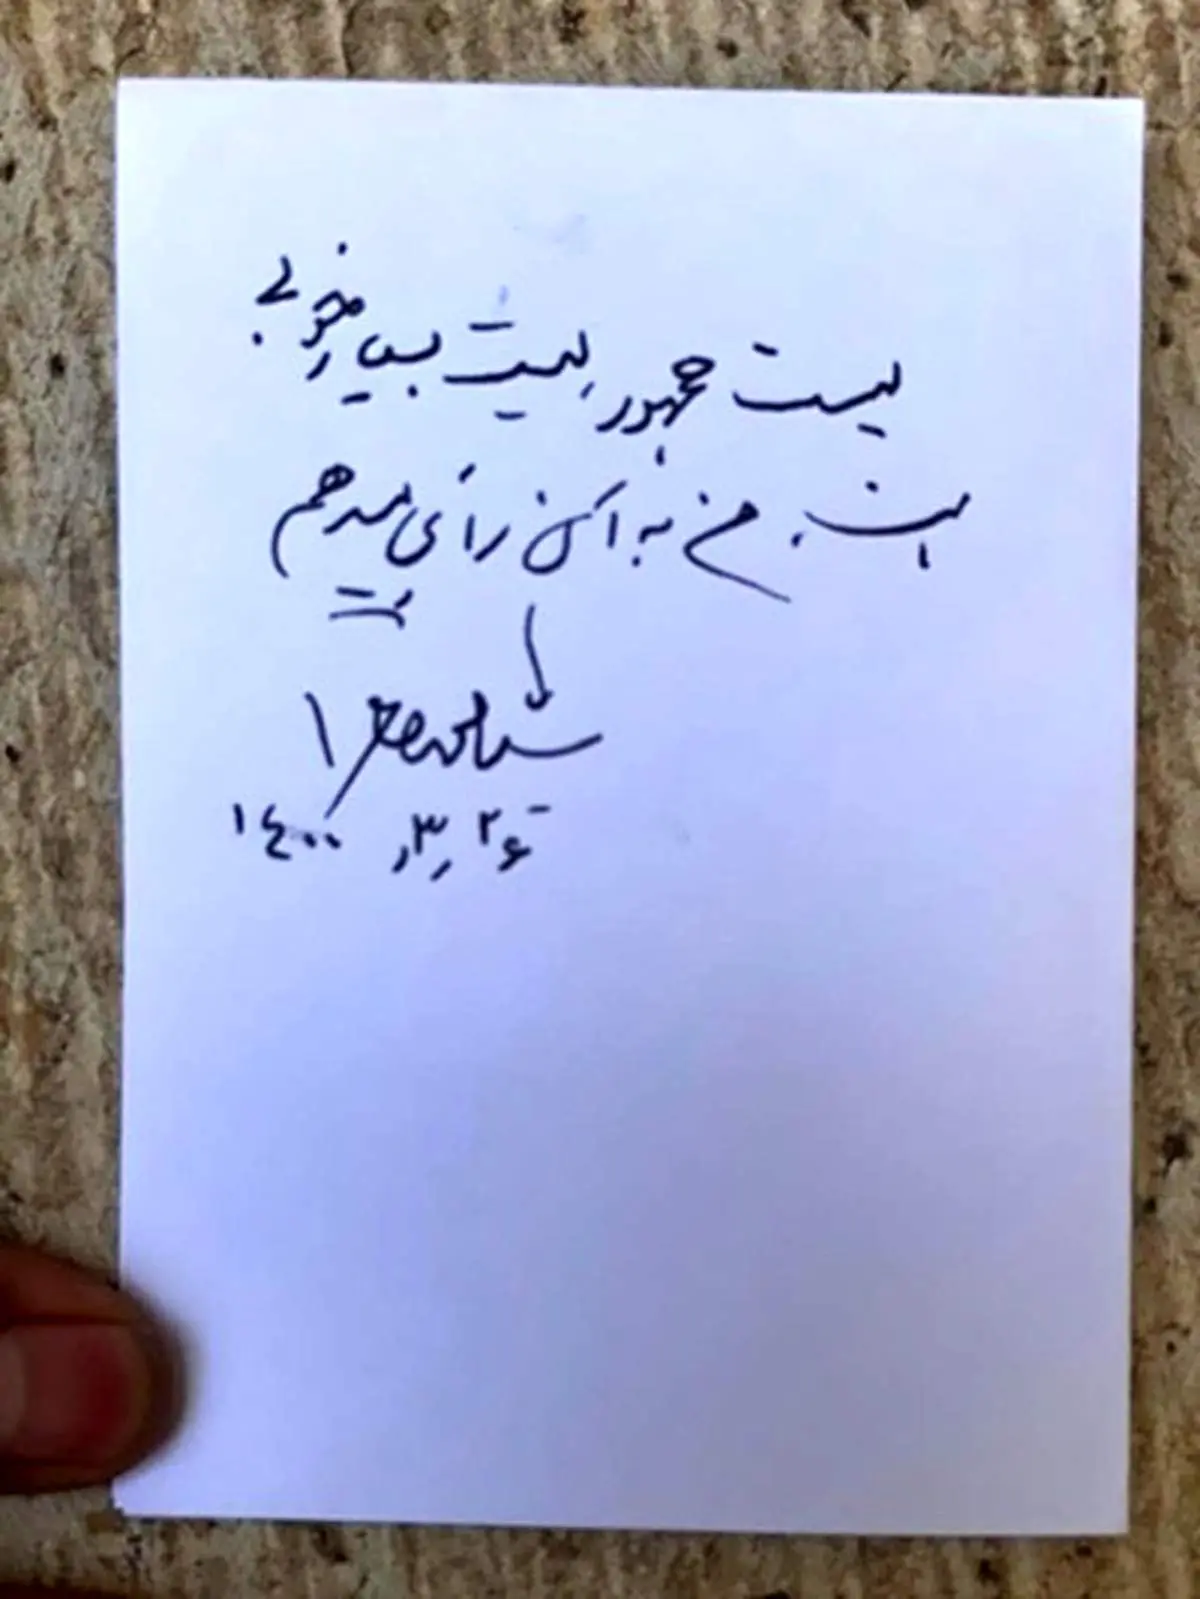 لیست جمهور لیست بسیار خوبی
است. من به آن رأی میدهم
۱۴۰۰٫۳٫۲۶